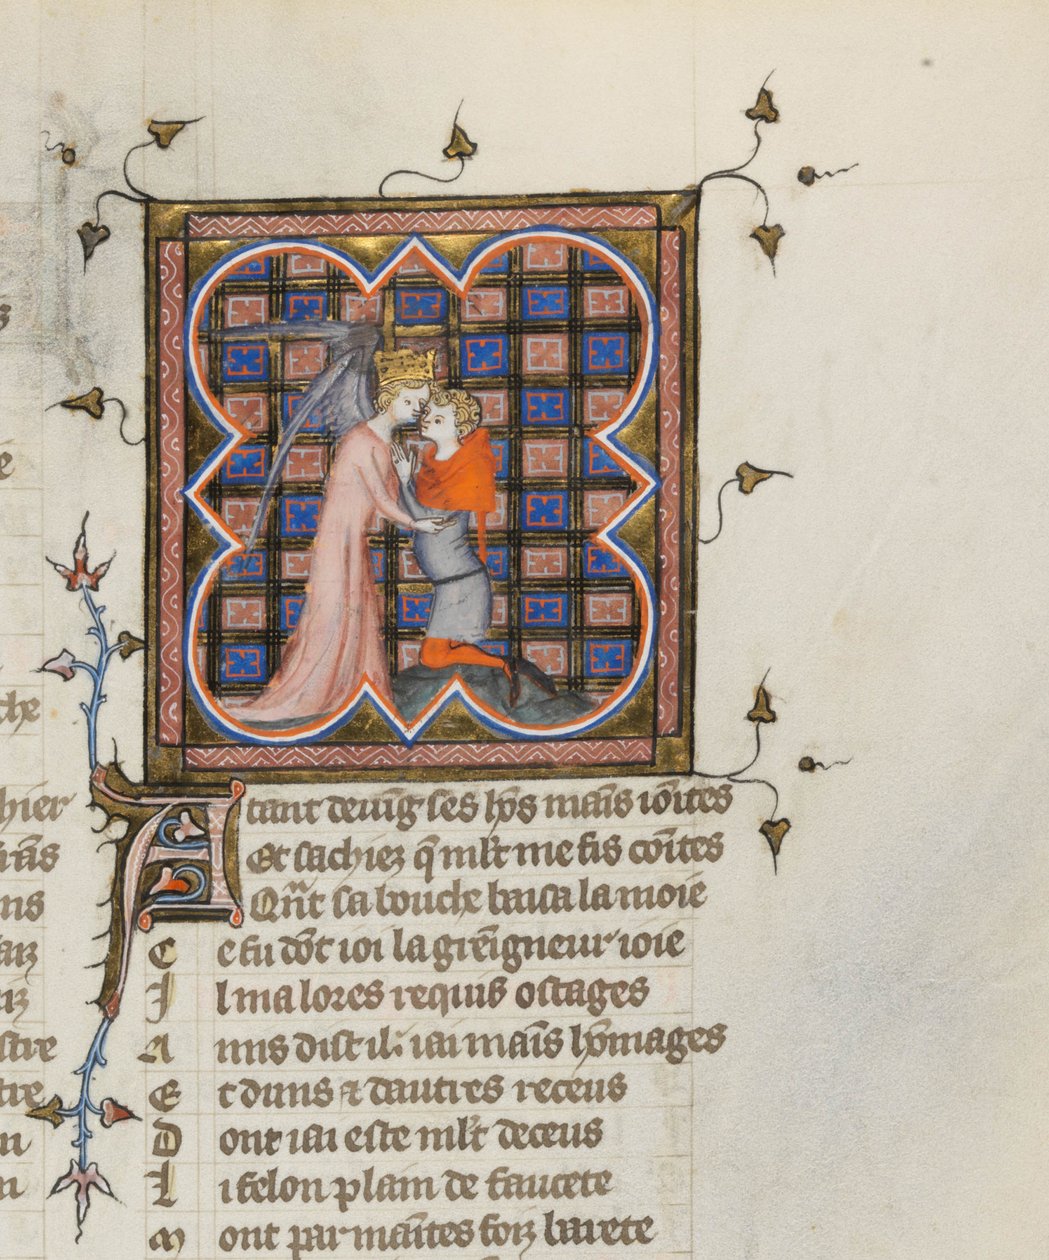 che
hier
ns
stre
tre
Atant deuīg ses hōs maīs ioītes
Et sachiez q̄ ml't me fis coītes
Qn̄t sa bouche baisa la moie
Ce fu dōt ioi la grēigneur ioie
Il ma lores requis ostages
Amis dist il iai maīs hōmages
Et duns ⁊ dautres receus
Dont iai este ml't deceus
Li felon plain de faucete
Mont par maītes foiz barete